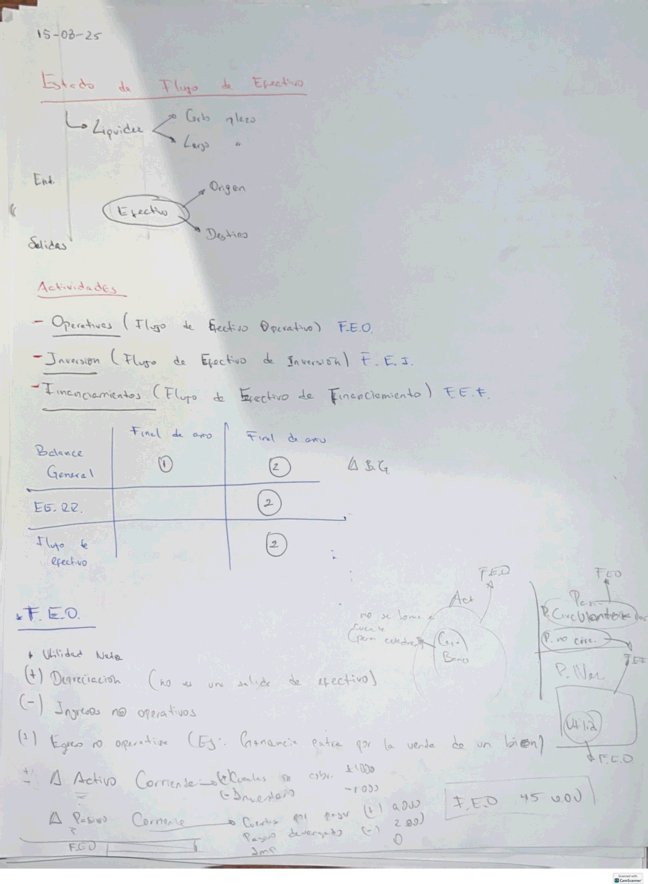 15-03-25
Estado de Flujo de Efectivo
Liquidez Corto plazo
Largo "
Ent. Origen
Efectivo
Salidas Destino
Actividades
- Operativas (Flujo de Efectivo Operativo) F.E.O.
- Inversión (Flujo de Efectivo de Inversión) F.E.I.
- Financiamientos (Flujo de Efectivo de Financiamiento) F.E.F.
Final de ano Final de ano
Balance General 1 2 Δ BG
EE.RR. 2
Flujo de efectivo 2
F.E.O.
F.E.O
Act
no se toma
Caja
Banco
FEO
Circulante
P. no circ.
P. Nec
Utilid
F.E.O
+ Utilidad Neta
(+) Depreciación (no es una salida de efectivo)
(-) Ingresos no operativos
(+) Egreso no operativo (Ej: Ganancia extra por la venta de un bien)
Δ Activo Corriente (+) Cuentas por cobrar
(-) Inventario
Δ Pasivo Corriente Cuentas por pagar (+)
Pasivo devengado (-)
Imp 0
F.E.O
F.E.O 45 000
CamScanner